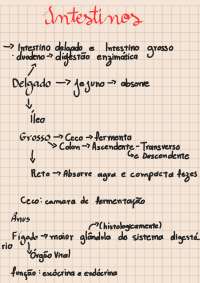 Intestinos
→ Intestino delgado e Intestino grosso
duodeno → digestão enzimática
Delgado → Jejuno → absorve
Íleo
Grosso → Ceco → fermenta
Colon → Ascendente - Transverso
e Descendente
Reto → Absorve agua e compacta fezes
Ceco: camara de fermentação
Ânus
(histologicamente)
Fígado → maior glândula do sistema digestó
rio
Órgão Vital
função: exócrina e endócrina